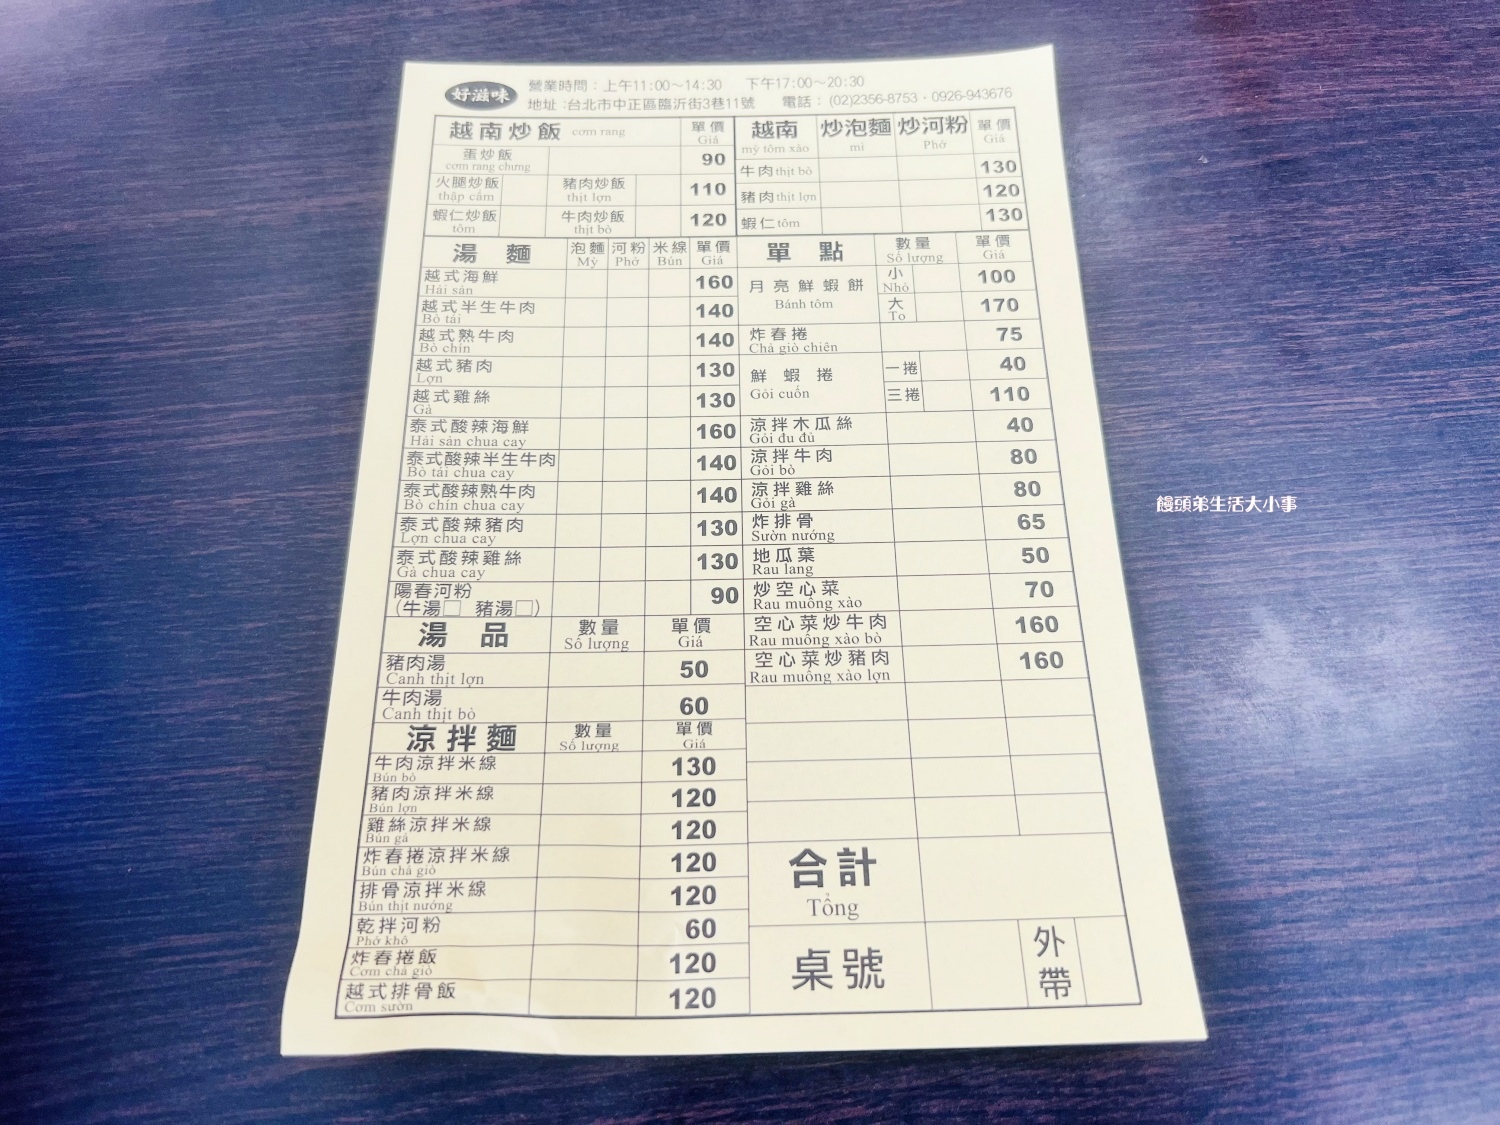 好滋味
營業時間：上午11:00～14:30 下午17:00～20:30
地址:台北市中正區臨沂街3巷11號 電話：(02)2356-8753．0926-943676
越南炒飯 cơm rang 單價 Giá
蛋炒飯 cơm rang chưng 90
火腿炒飯 thập cẩm 豬肉炒飯 thịt lợn 110
蝦仁炒飯 tôm 牛肉炒飯 thịt bò 120
越南 mỳ tôm xào 炒泡麵 mì 炒河粉 Phở 單價 Giá
牛肉 thịt bò 130
豬肉 thịt lợn 120
蝦仁 tôm 130
湯麵 泡麵 Mỳ 河粉 Phở 米線 Bún 單價 Giá
越式海鮮 Hải sản 160
越式半生牛肉 Bò tái 140
越式熟牛肉 Bò chín 140
越式豬肉 Lợn 130
越式雞絲 Gà 130
泰式酸辣海鮮 Hải sản chua cay 160
泰式酸辣半生牛肉 Bò tái chua cay 140
泰式酸辣熟牛肉 Bò chín chua cay 140
泰式酸辣豬肉 Lợn chua cay 130
泰式酸辣雞絲 Gà chua cay 130
陽春河粉
(牛湯□ 豬湯□) 90
湯品 數量 Số lượng 單價 Giá
豬肉湯 Canh thịt lợn 50
牛肉湯 Canh thịt bò 60
涼拌麵 數量 Số lượng 單價 Giá
牛肉涼拌米線 Bún bò 130
豬肉涼拌米線 Bún lợn 120
雞絲涼拌米線 Bún gà 120
炸春捲涼拌米線 Bún chả giò 120
排骨涼拌米線 Bún thịt nướng 120
乾拌河粉 Phở khô 60
炸春捲飯 Cơm chả giò 120
越式排骨飯 Cơm sườn 120
單點 數量 Số lượng 單價 Giá
月亮鮮蝦餅 Bánh tôm 小 Nhỏ 100
大 To 170
炸春捲 Chả giò chiên 75
鮮蝦捲 Gỏi cuốn 一捲 40
三捲 110
涼拌木瓜絲 Gỏi đu đủ 40
涼拌牛肉 Gỏi bò 80
涼拌雞絲 Gỏi gà 80
炸排骨 Sườn nướng 65
地瓜葉 Rau lang 50
炒空心菜 Rau muống xào 70
空心菜炒牛肉 Rau muống xào bò 160
空心菜炒豬肉 Rau muống xào lợn 160
合計 Tổng
桌號 外帶
饅頭弟生活大小事